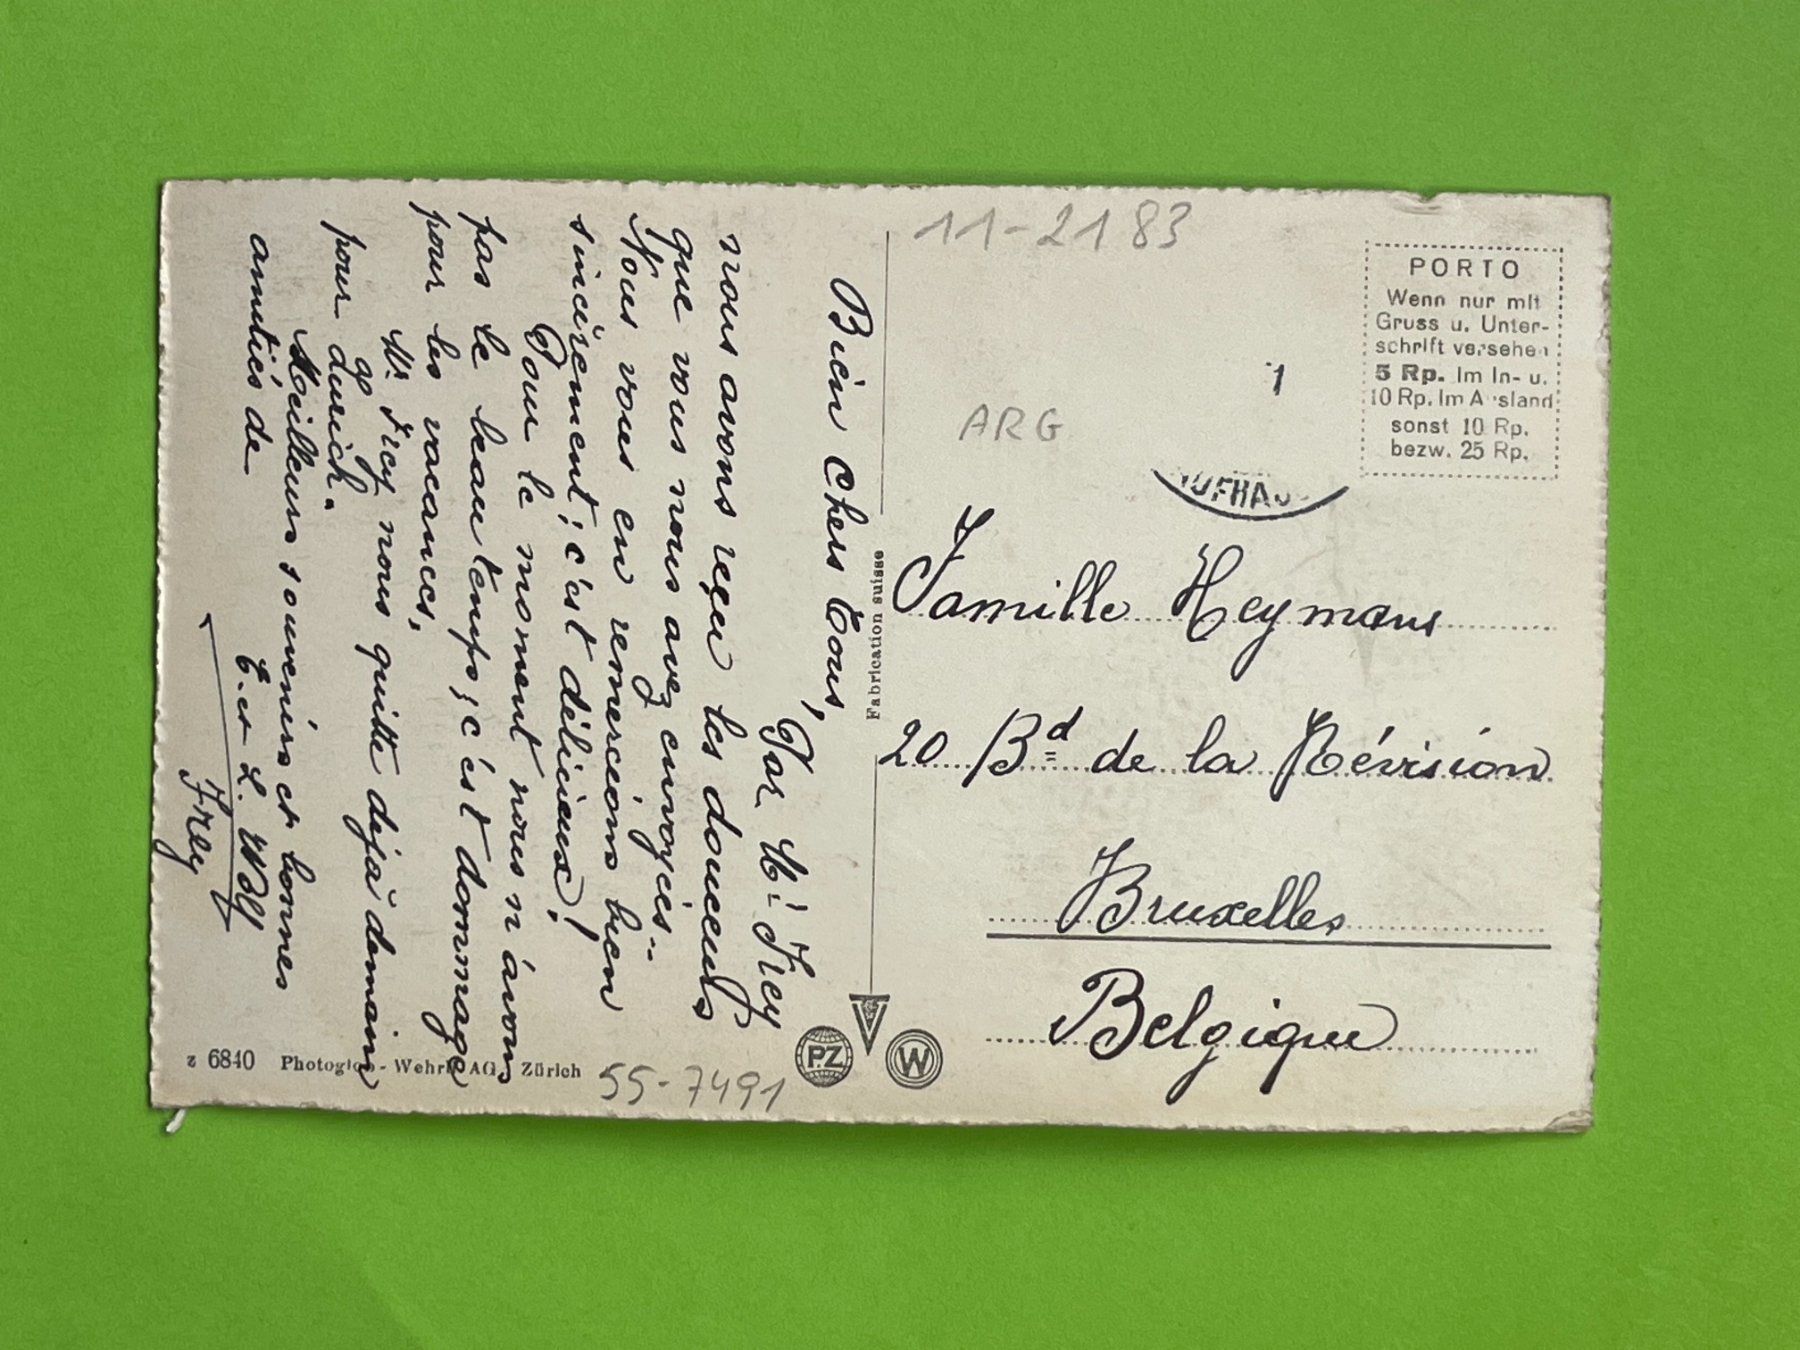 11-2183
PORTO
Wenn nur mit
Gruss u. Unter-
schrift versehen
5 Rp. im In- u.
10 Rp. im Ausland
sonst 10 Rp.
bezw. 25 Rp.
1
ARG
UFHA
Famille Heymans
20 Bd de la Révision
Bruxelles
Belgique
Fabrication suisse
Bien chers tous,
Par Mr Frey
nous avons reçu les douceurs
que vous nous avez envoyées..
Nous vous en remercions bien
sincèrement; c'est délicieux!
Pour le moment nous n'avons
pas le beau temps; c'est dommage
pour les vacances,
Mr Frey nous quitte déjà demain
pour Zurich.
Meilleurs souvenirs et bonnes
amitiés de
E. et L.
Frey
z 6840 Photoglob-Wehrli AG, Zürich
55-7491
PZ
V
W